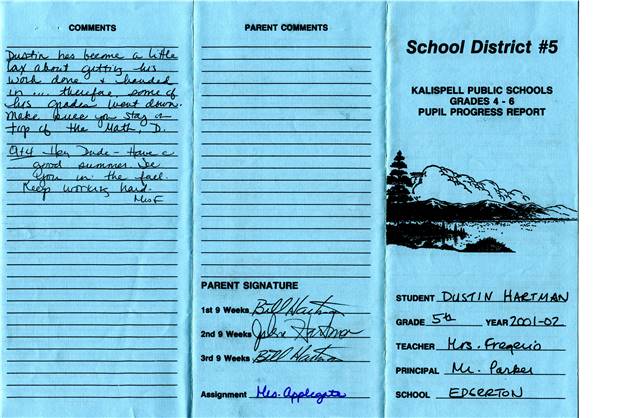 COMMENTS
Dustin has become a little
lax about getting his
work done & handed
in ... therefore, some of
his grades went down.
Make sure you stay on
top of the Math, D.
Qt4 Hey Dude - Have a
good summer. See
you in the fall.
Keep working hard.
Mrs F
PARENT COMMENTS
PARENT SIGNATURE
1st 9 Weeks Bill Hartman
2nd 9 Weeks Julie Hartman
3rd 9 Weeks Bill Hartman
Assignment Mrs. Applegate
School District #5
KALISPELL PUBLIC SCHOOLS
GRADES 4 - 6
PUPIL PROGRESS REPORT
STUDENT DUSTIN HARTMAN
GRADE 5th YEAR 2001-02
TEACHER Mrs. Fregerio
PRINCIPAL Mr. Parker
SCHOOL EDGERTON